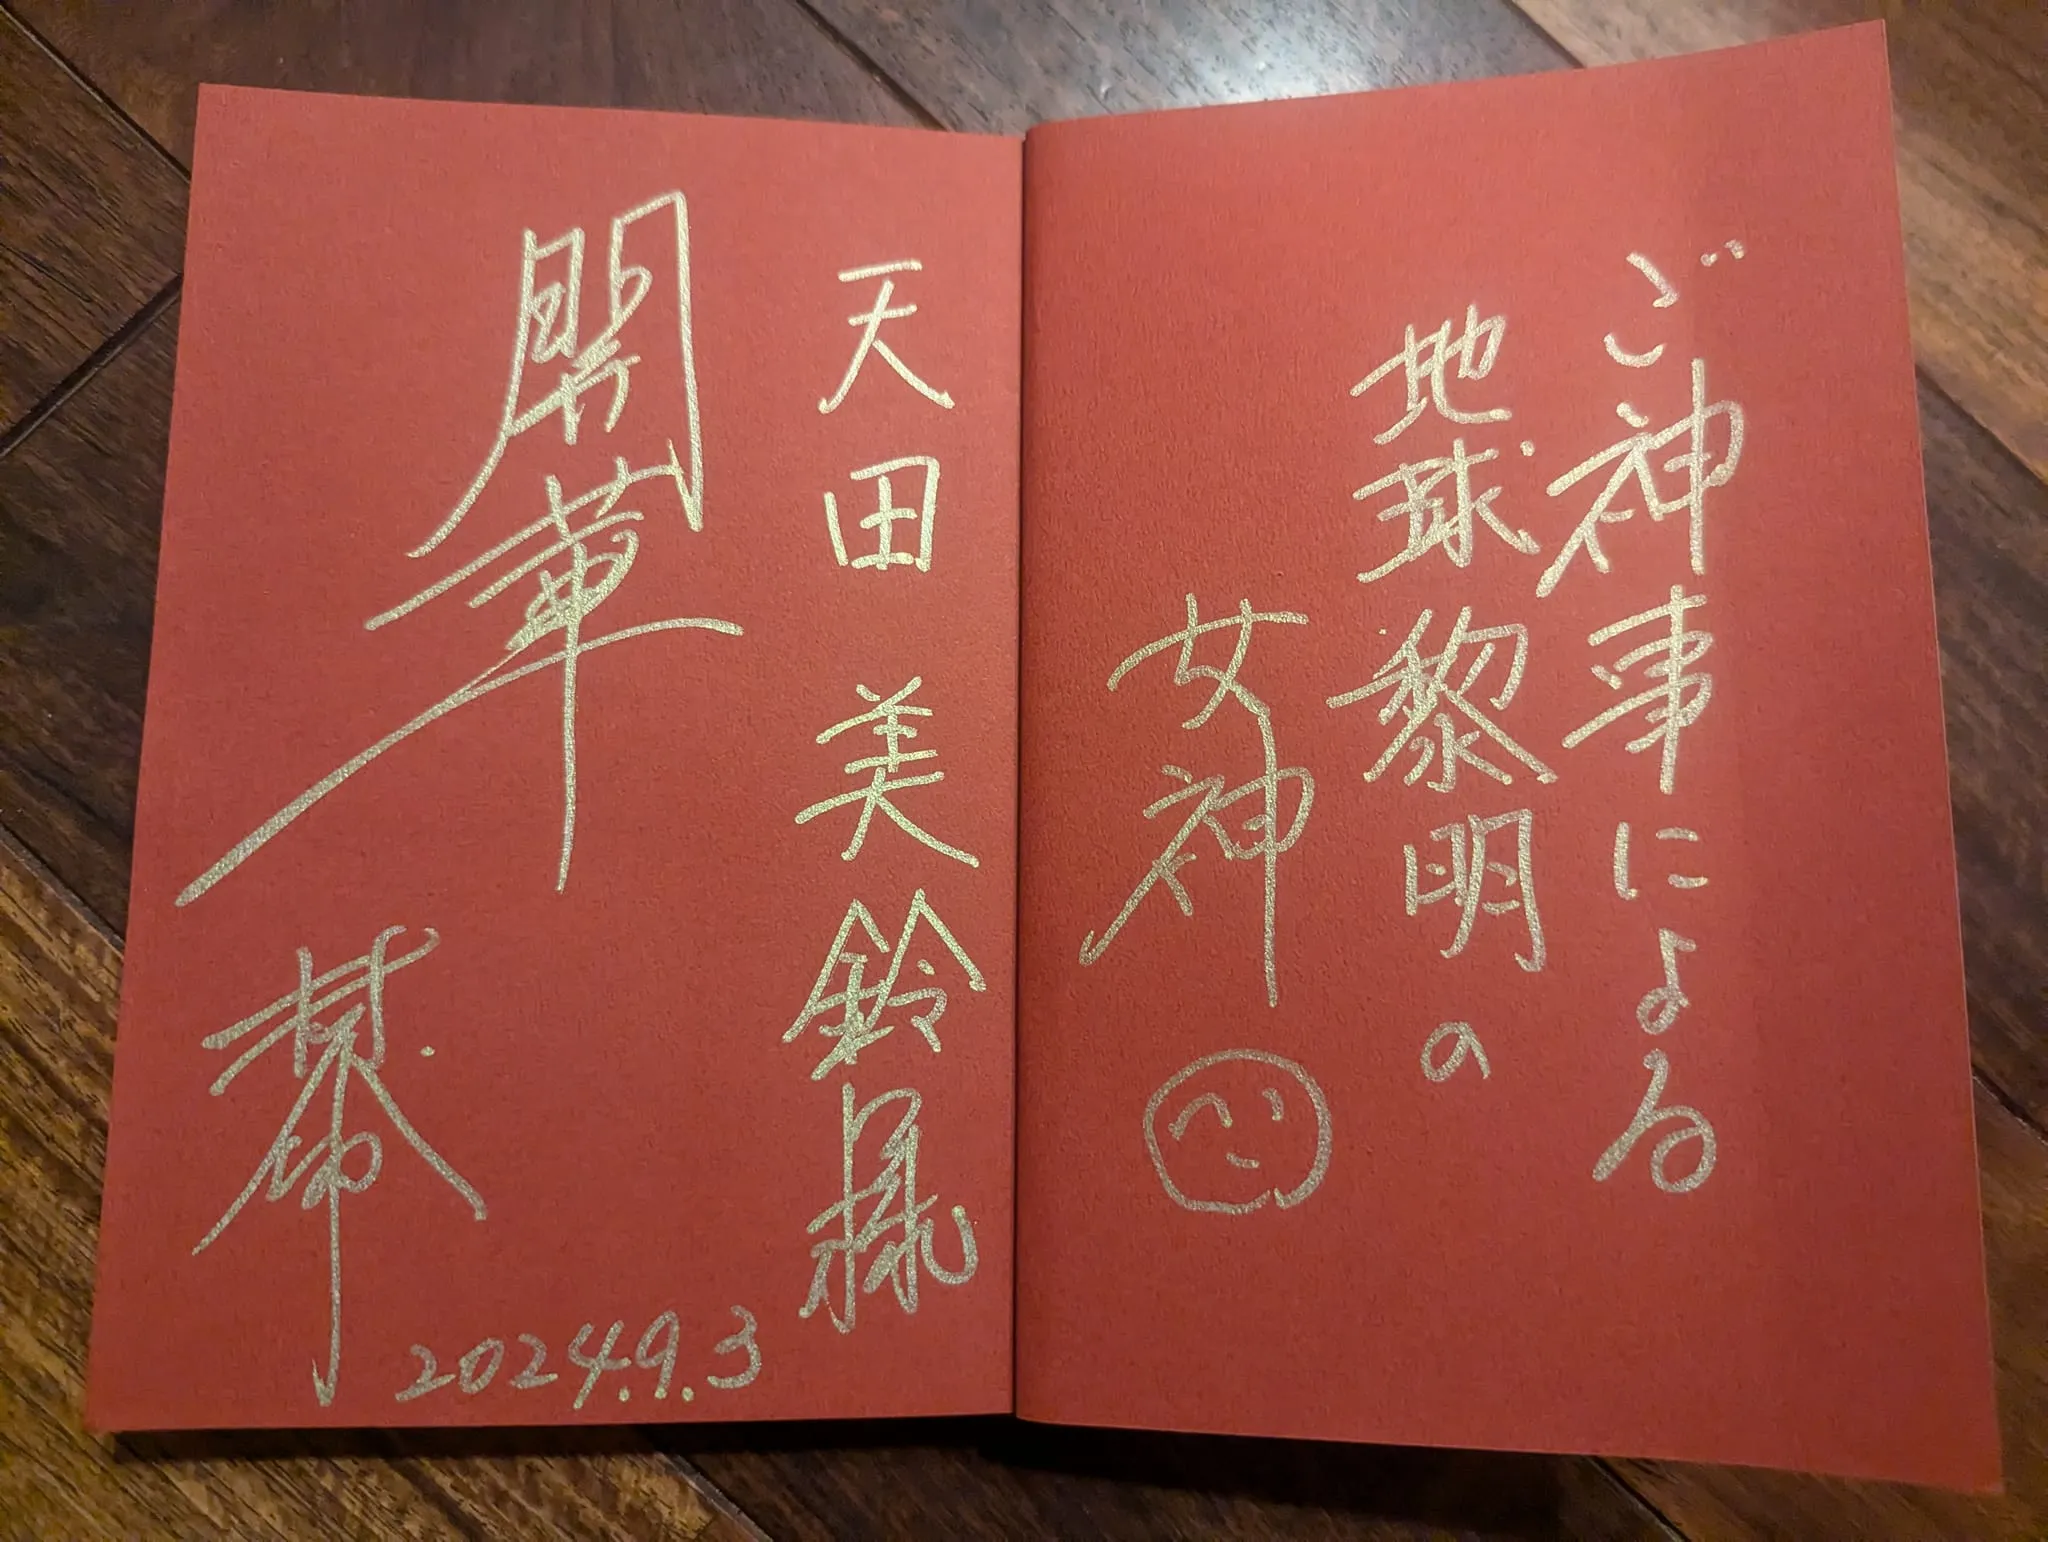 ご神事による
地球黎明の
女神
天田 美鈴様
開華
幕
2024.9.3